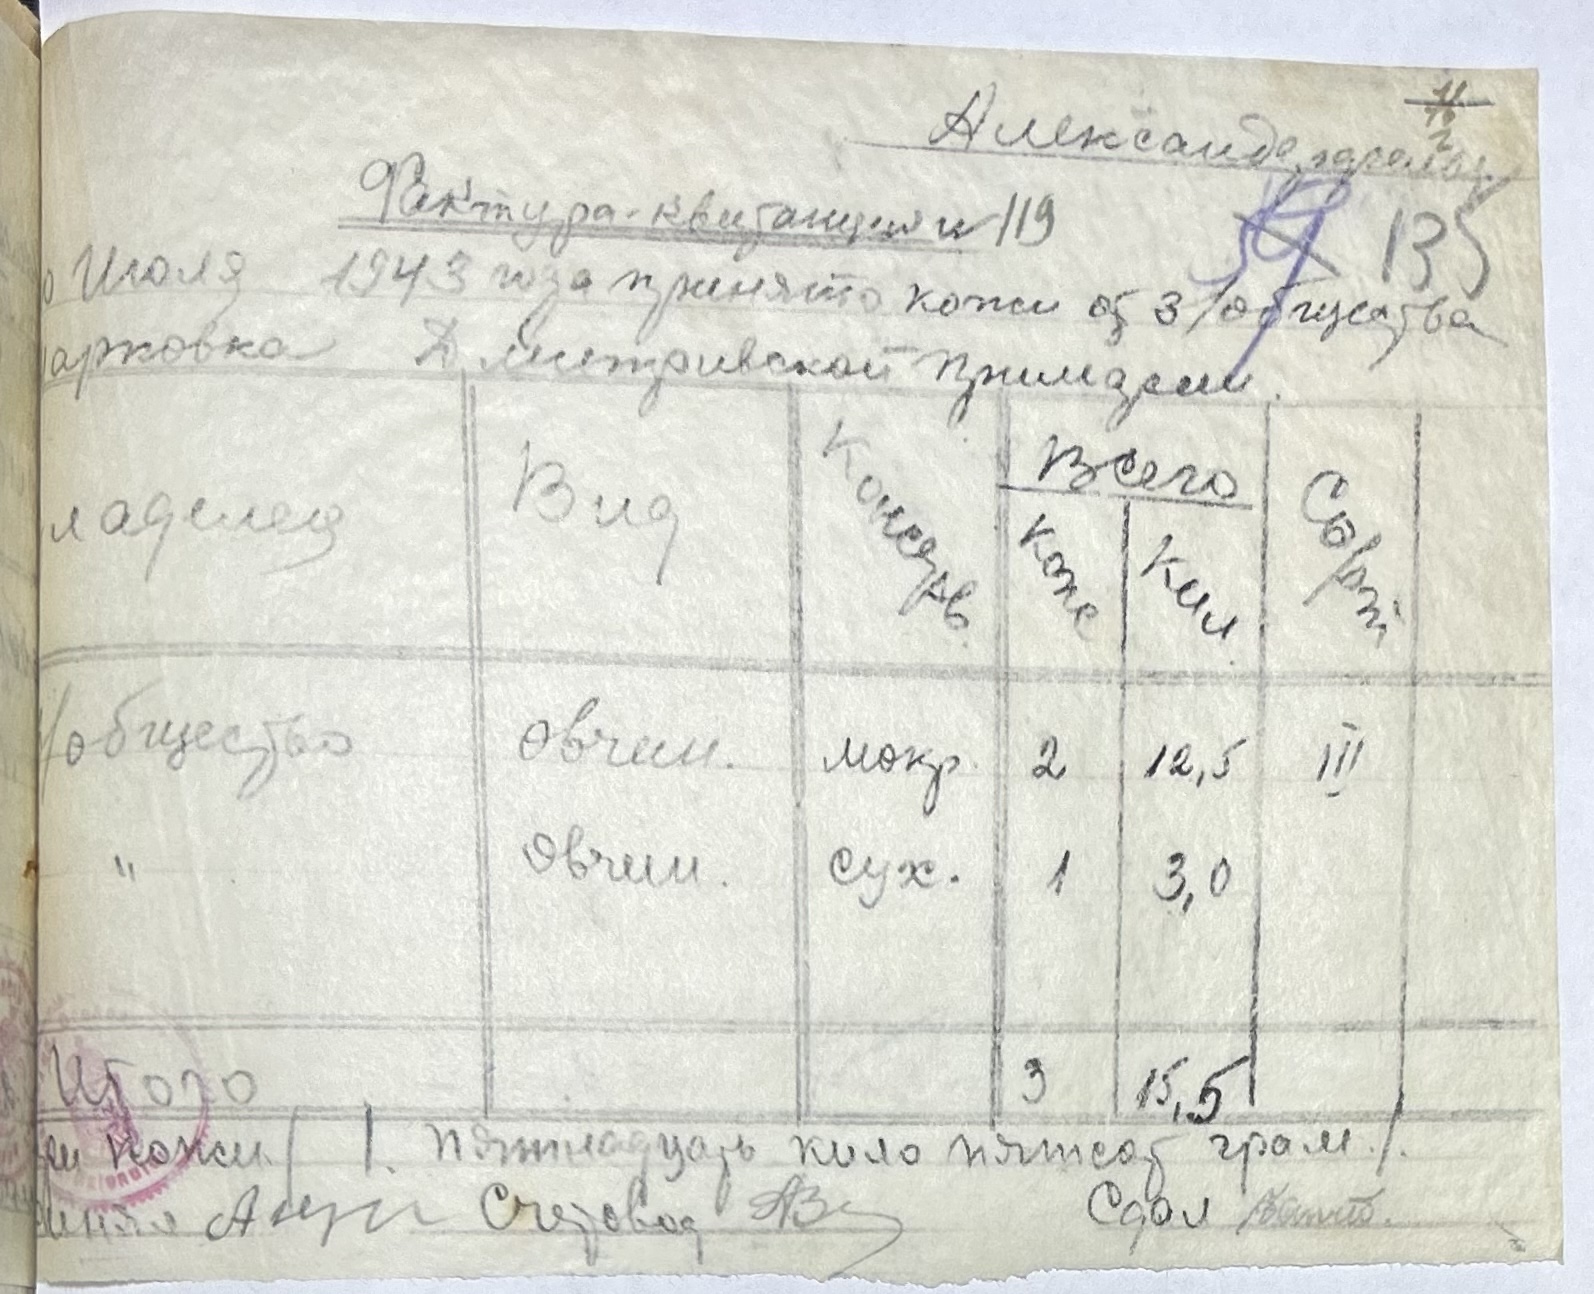 11
Фактура-квитанция № 119
135
Июля 1943 года принято кожи от з/общества
арковка Дмитровской примарии.
ладелец Вид Консерв. Всего Сорт
Кож Кил.
/общество Овчин. мокр. 2 12,5 III
" Овчин. сух. 1 3,0
Итого 3 15,5
ри кожи/ /. пятнадцать кило пятсот грам./.
инял Счетовод Сдал